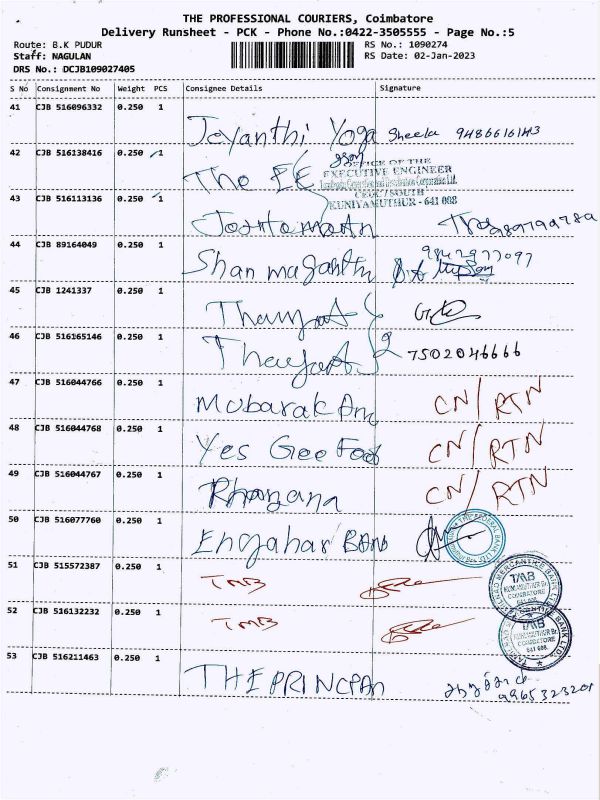 THE PROFESSIONAL COURIERS, Coimbatore
Delivery Runsheet - PCK - Phone No.:0422-3505555 - Page No.:5
Route: B.K PUDUR
RS No.: 1090274
Staff: NAGULAN
RS Date: 02-Jan-2023
DRS No.: DCJB109027405
S No Consignment No Weight PCS Consignee Details Signature
41 CJB 516096332 0.250 1
Jeyanthi Yoga Sheela
42 CJB 516138416 0.250 1
The EE
OFFICE OF THE
EXECUTIVE ENGINEER
CEDC / SOUTH
KUNIYAMUTHUR - 641 008
43 CJB 516113136 0.250 1
44 CJB 89164049 0.250 1
9842977097
45 CJB 1241337 0.250 1
46 CJB 516165146 0.250 1
7502046666
47 CJB 516044766 0.250 1
Mubarak Am CN/RTN
48 CJB 516044768 0.250 1
Yes Gee Foods CN/RTN
49 CJB 516044767 0.250 1
CN/RTN
50 CJB 516077760 0.250 1
51 CJB 515572387 0.250 1
TMB
TAMILNAD MERCANTILE BANK LTD
TMB
KUNIAMUTHUR Br.
COIMBATORE
641 008.
52 CJB 516132232 0.250 1
TMB
TMB
KUNIAMUTHUR Br.
COIMBATORE
641 008.
53 CJB 516211463 0.250 1
THE PRINCPAN
9965323201